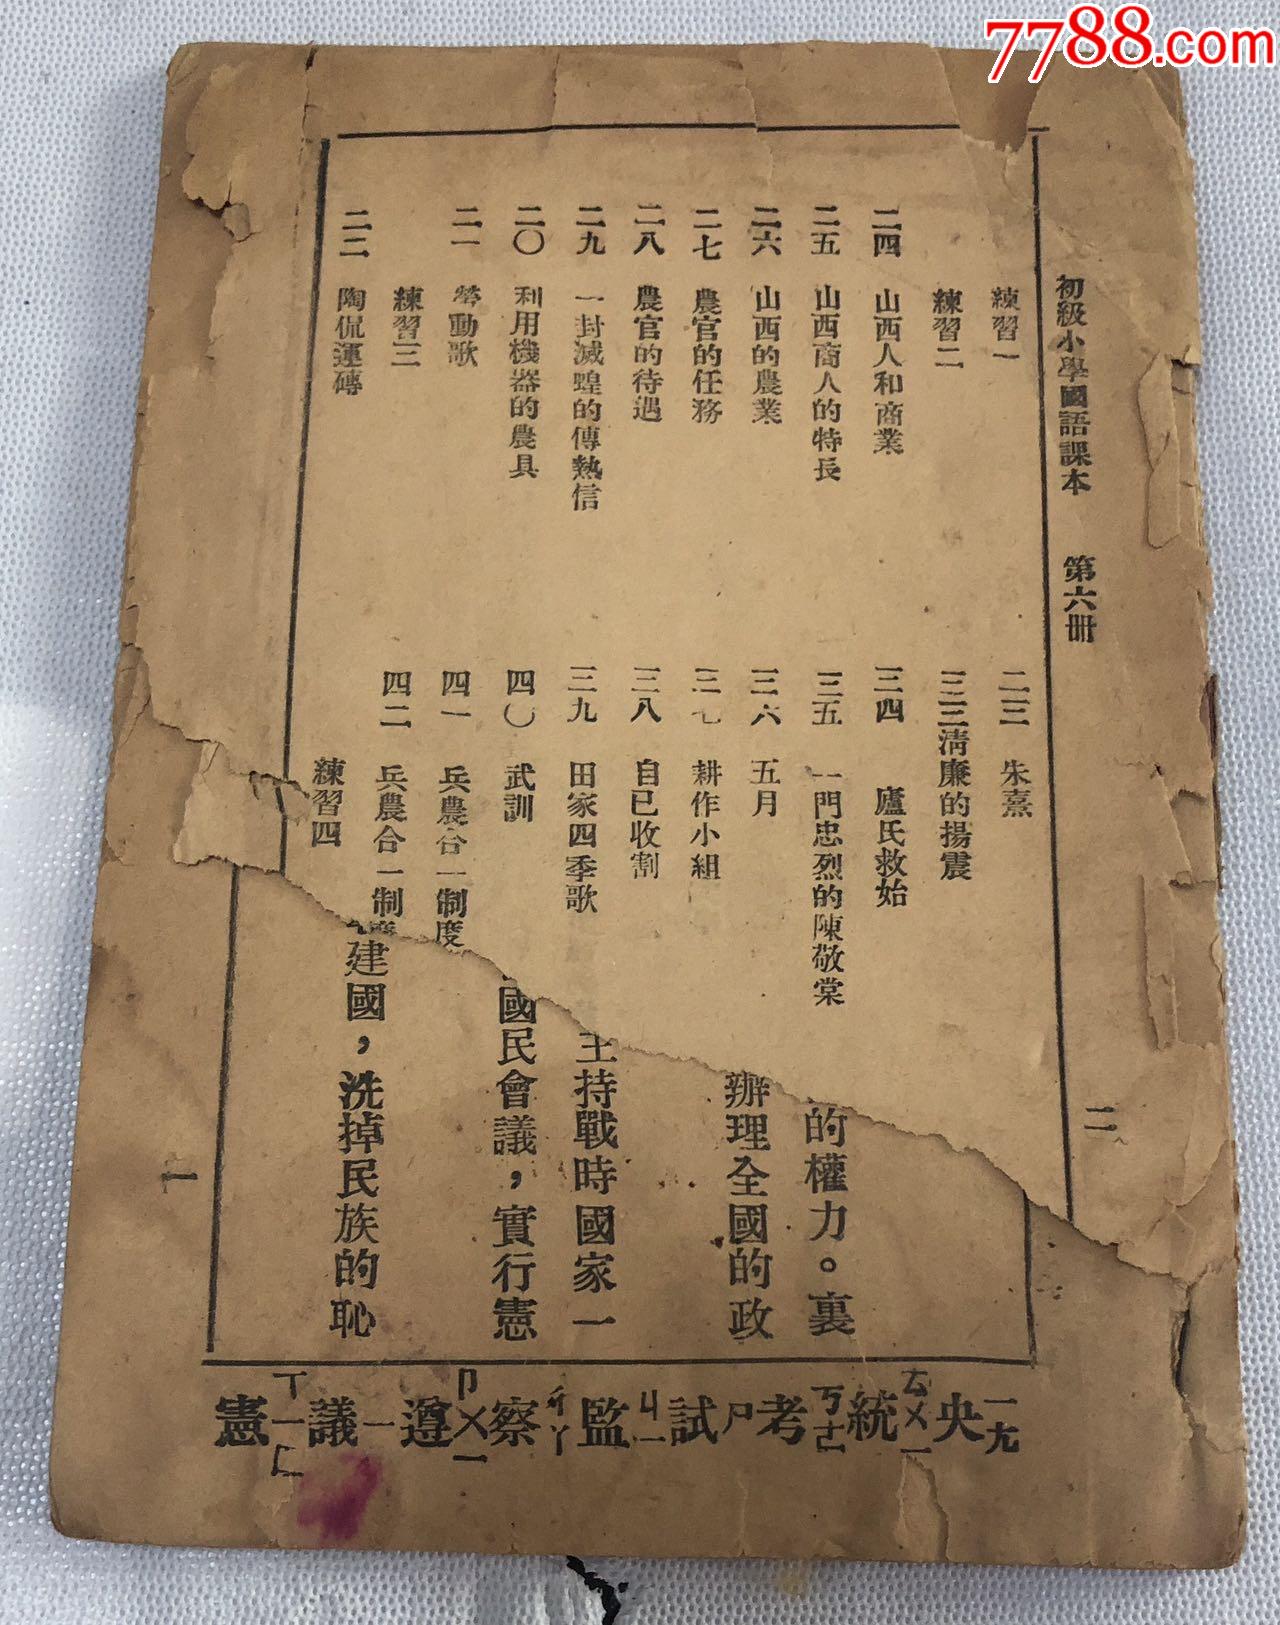 7788.com
初級小學國語課本 第六冊
二
練習一
練習二
二四 山西人和商業
二五 山西商人的特長
二六 山西的農業
二七 農官的任務
二八 農官的待遇
二九 一封滅蝗的傳熱信
二〇 利用機器的農具
二一 勞動歌
練習三
二二 陶侃運磚
二三 朱熹
三三 清廉的揚震
三四 盧氏救始
三五 一門忠烈的陳敬棠
三六 五月
三七 耕作小組
三八 自已收割
三九 田家四季歌
四〇 武訓
四一 兵農合一制度
四二 兵農合一制度
練習四
的權力。裏
辦理全國的政
主持戰時國家一
國民會議，實行憲
建國，洗掉民族的恥
一
央ㄧㄤ 統ㄊㄨㄥ 考ㄎㄠ 試ㄕ 監ㄐㄧ 察ㄔㄚ 遵ㄗㄨ 議ㄧ 憲ㄒㄧㄢ